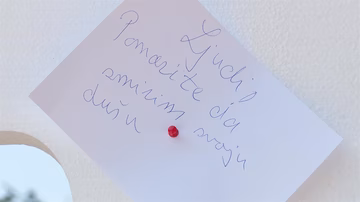 Ljudi!
Pomozite da
smirim svoju
dušu